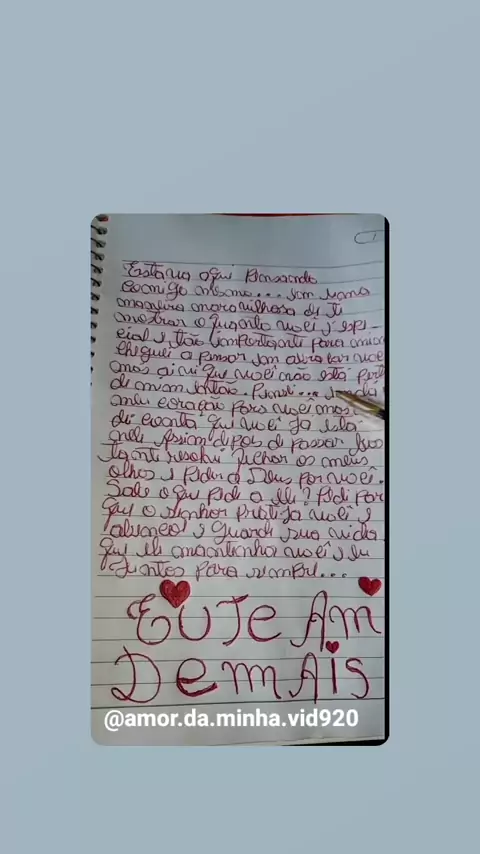 Estava aqui Pensando
comigo mesmo... em uma
maneira maravilhosa de Te
mostrar o quanto você é espe-
cial e tão importante para mim
cheguei a pensar em abraçar você
mas ai vi que você não está perto
de mim então. Pensei...
meu coração para você mas
di conta que você já está
nele Assim depois de pensar bas
tante resolvi fechar os meus
olhos e Pedir a Deus por você.
Sabe o que pedi a Ele? Pedi Par
que o senhor proteja você e
abençoe e Guarde sua vida
que ele mantenha você e eu
Juntos Para sempre...
EU Te Am
DemAis
@amor.da.minha.vid920